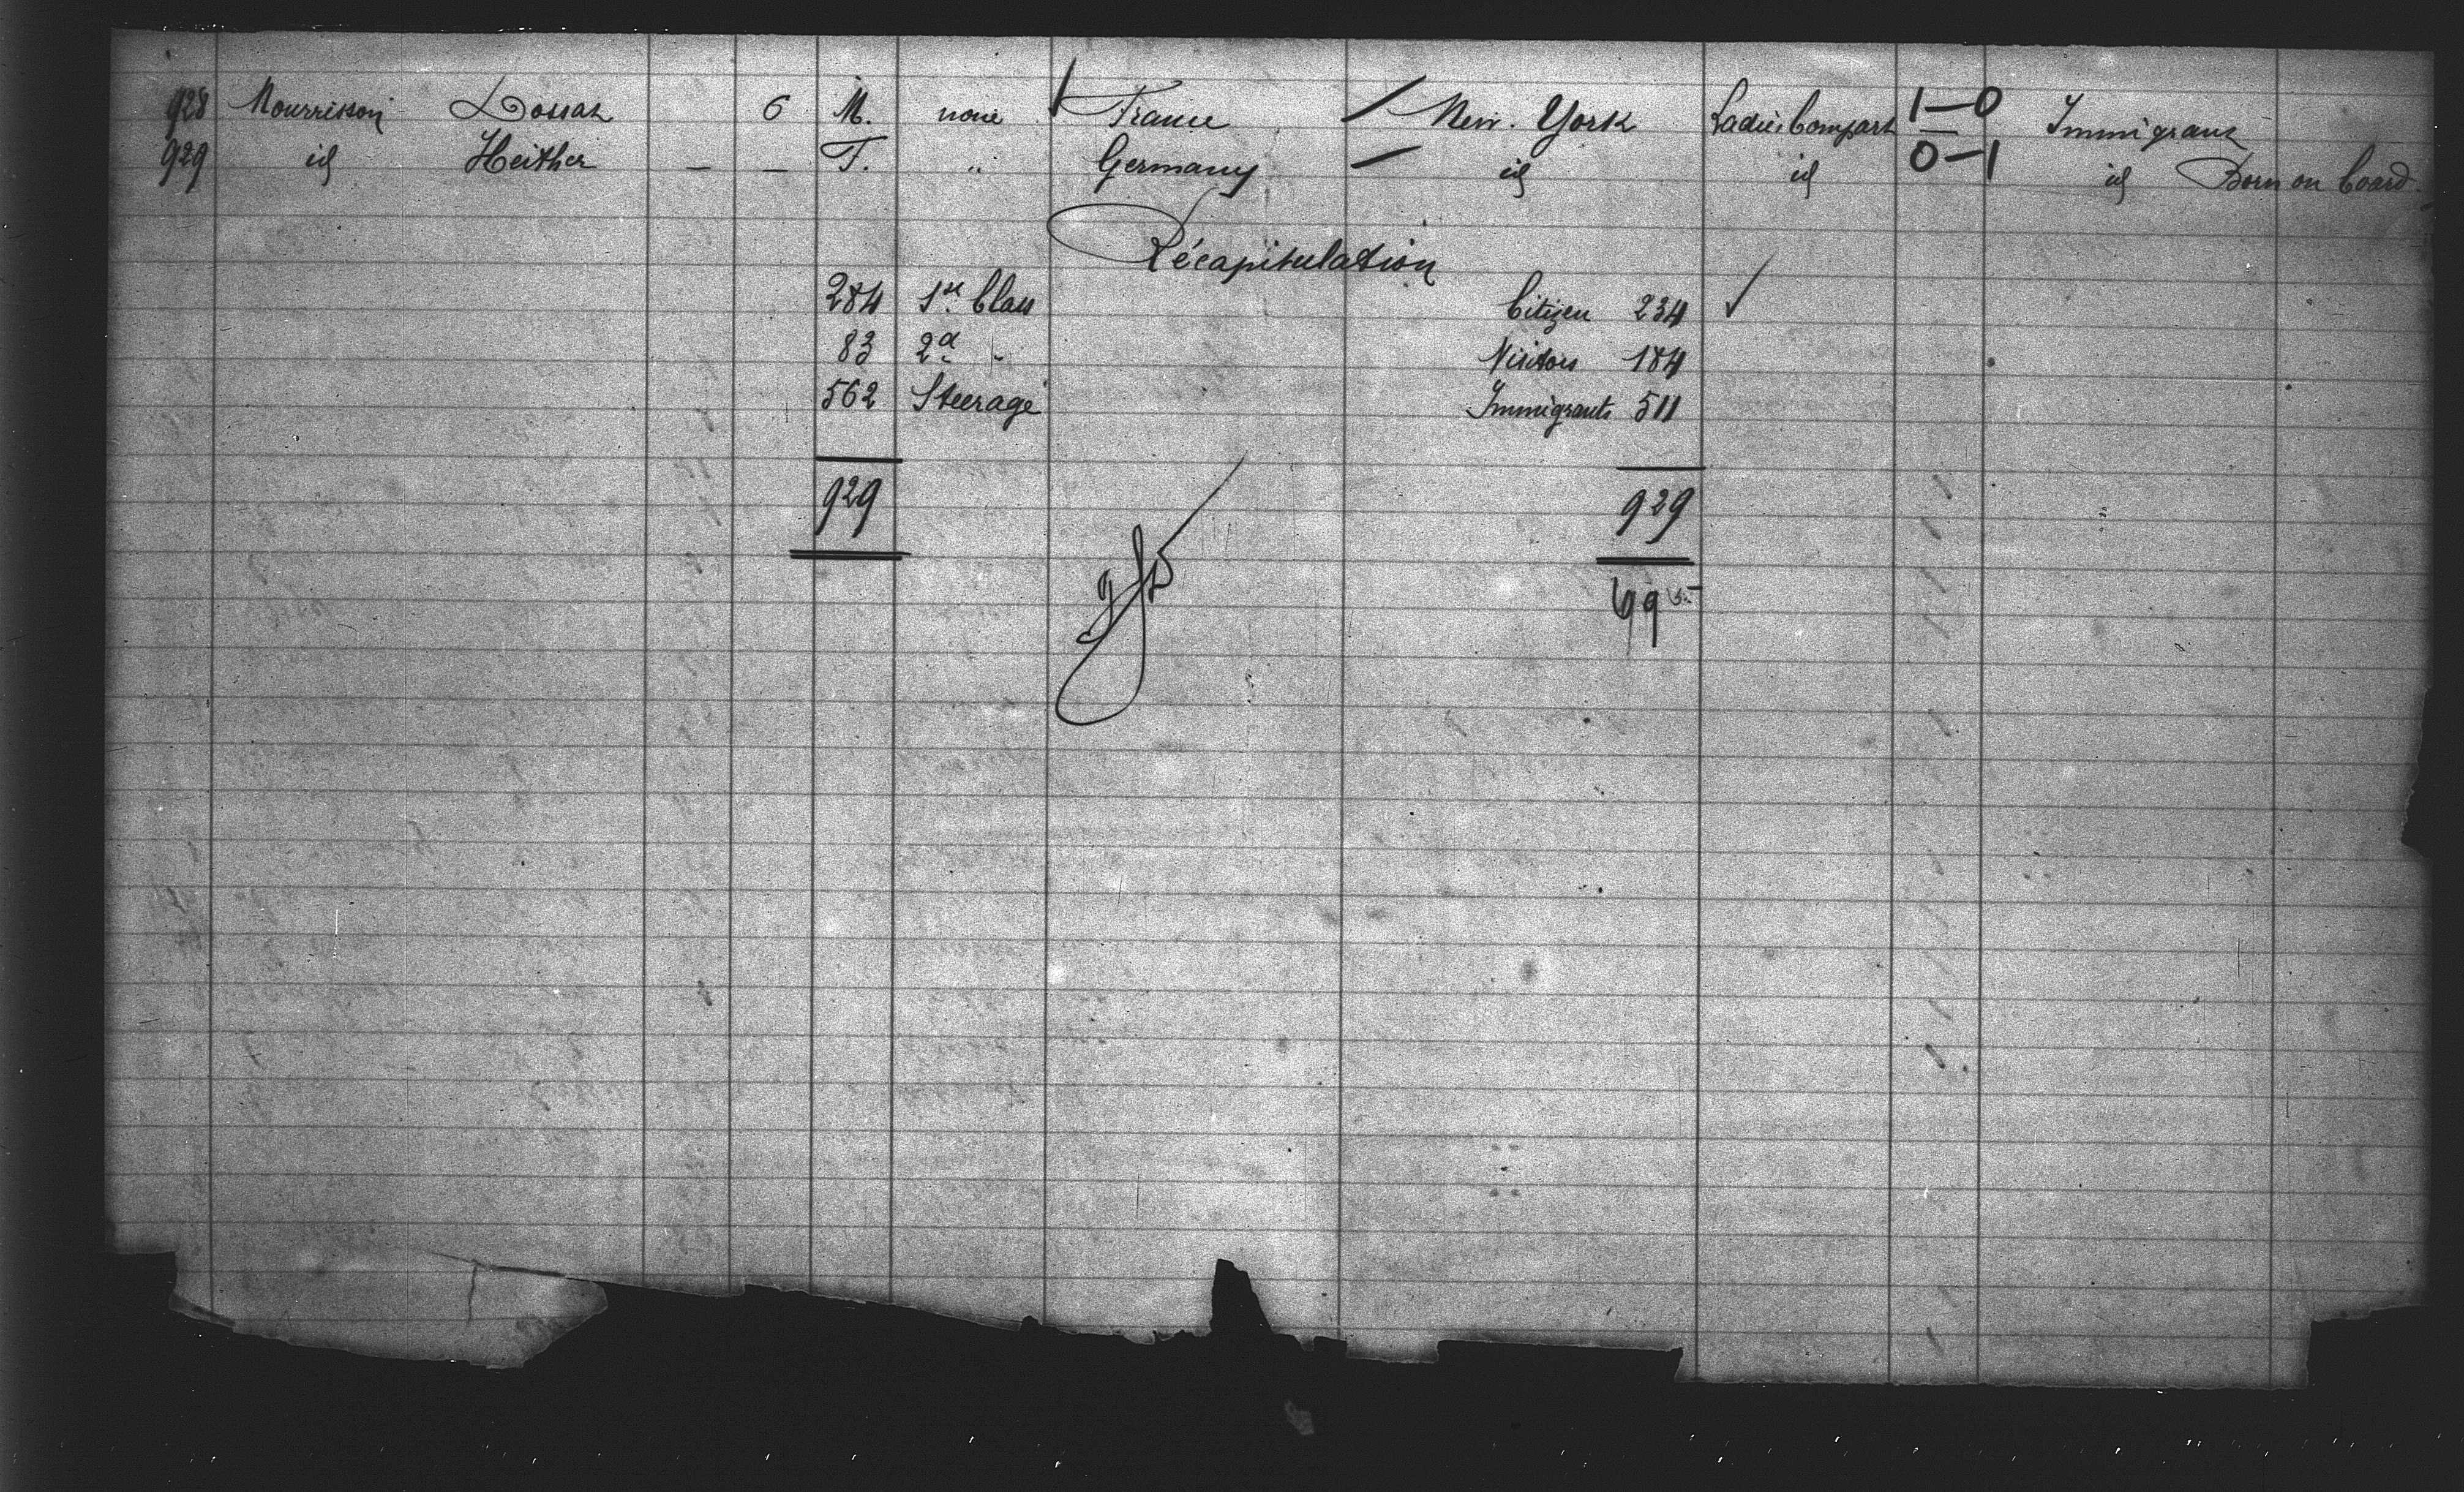 928 Nourrisson Dossar 6 M. none France New. York Ladies Compart 1—0 Immigrant
929 id Heither — — F. " Germany id id 0—1 id Born on board
Récapitulation
284 1st Class Citizen 234 ✓
83 2d " Visitors 184
562 Steerage Immigrants 511
929 929
695